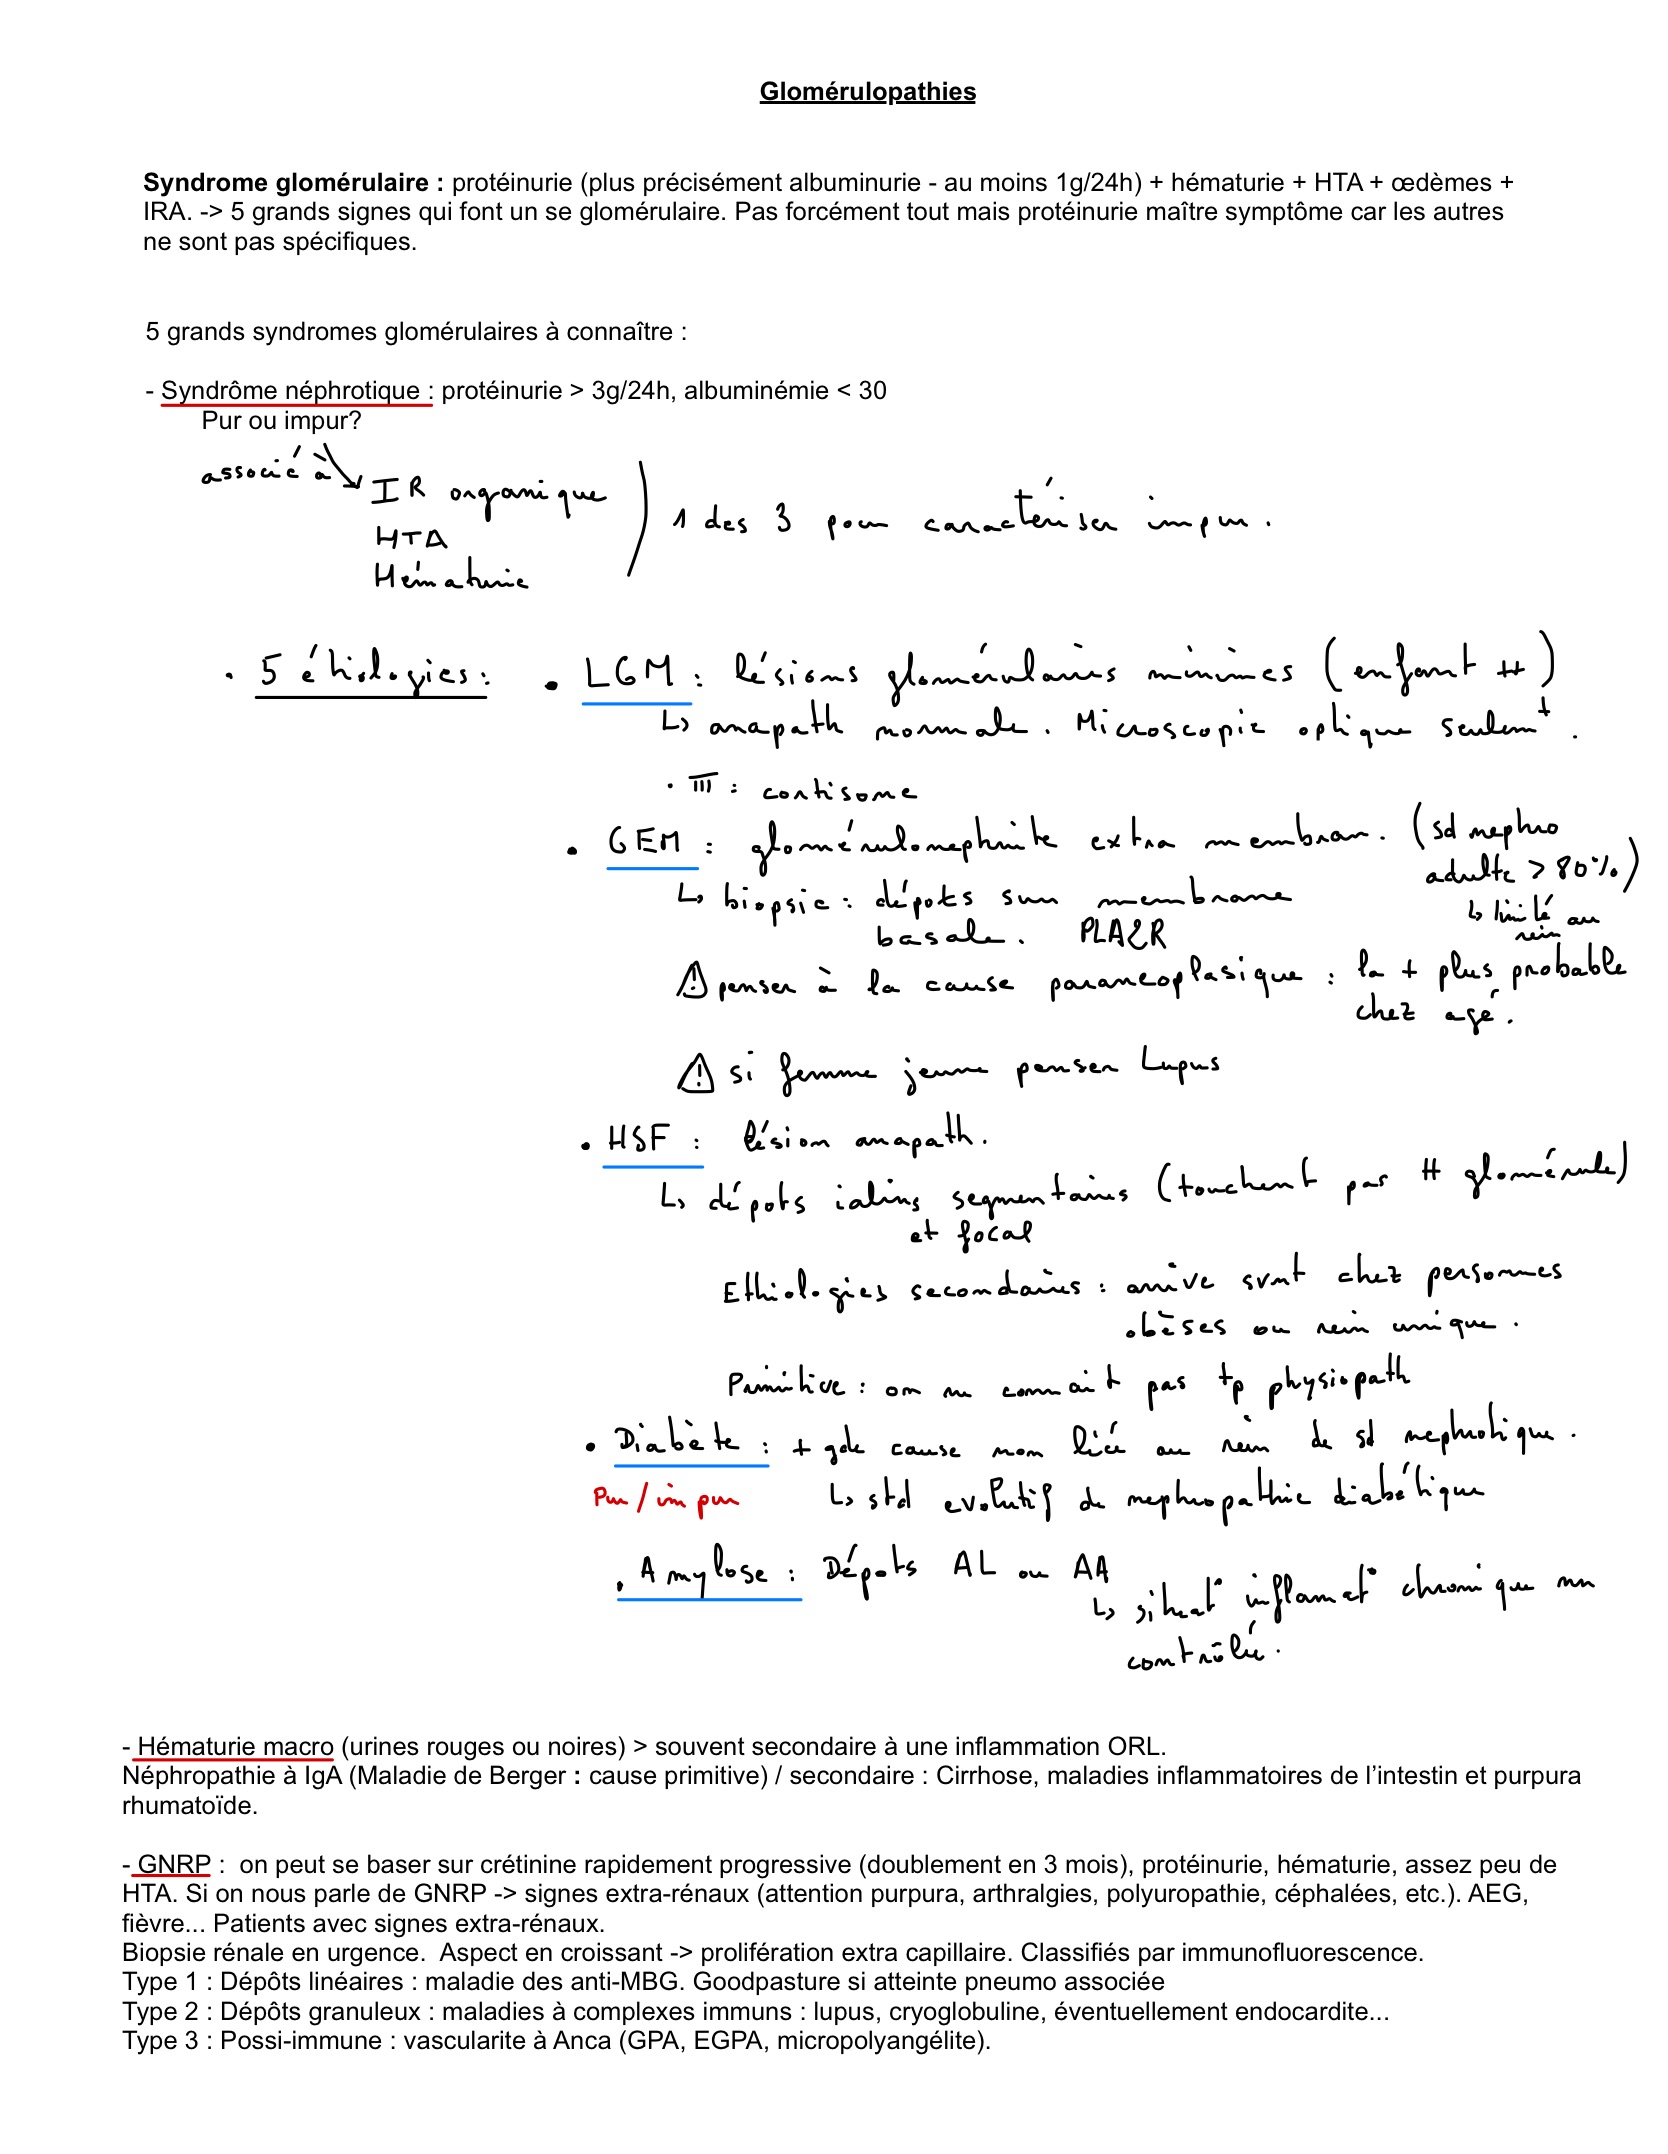 Glomérulopathies
Syndrome glomérulaire : protéinurie (plus précisément albuminurie - au moins 1g/24h) + hématurie + HTA + œdèmes +
IRA. -> 5 grands signes qui font un se glomérulaire. Pas forcément tout mais protéinurie maître symptôme car les autres
ne sont pas spécifiques.
5 grands syndromes glomérulaires à connaître :
- Syndrôme néphrotique : protéinurie > 3g/24h, albuminémie < 30
Pur ou impur?
associé à
IR organique
HTA
Hématurie
1 des 3 pour caractériser impur.
• 5 éthiologies :
• LGM : lésions glomérulaires minimes (enfant ++)
↳ anapath normale. Microscopie optique seulemt.
• TTT : cortisone
• GEM : glomérulonephrite extra membran. (sd nephro
adulte > 80%)
↳ limité au
rein
↳ biopsie : dépots sur membrane
basale. PLA2R
⚠ penser à la cause paraneoplasique : la + plus probable
chez agé.
⚠ si femme jeune penser Lupus
• HSF : lésion anapath.
↳ dépots ialins segmentaires (touchent pas ≠ glomérule)
et focal
Ethiologies secondaires : arrive svnt chez personnes
obèses ou rein unique.
Primitive : on ne connait pas tp physiopath
• Diabète : + gde cause non liée au rein de sd nephrotique.
Pur / impur
↳ std evolutif de nephropathie diabétique
• Amylose : Dépots AL ou AA
↳ situat° inflamat° chronique nn
contrôlée.
- Hématurie macro (urines rouges ou noires) > souvent secondaire à une inflammation ORL.
Néphropathie à IgA (Maladie de Berger : cause primitive) / secondaire : Cirrhose, maladies inflammatoires de l’intestin et purpura
rhumatoïde.
- GNRP : on peut se baser sur crétinine rapidement progressive (doublement en 3 mois), protéinurie, hématurie, assez peu de
HTA. Si on nous parle de GNRP -> signes extra-rénaux (attention purpura, arthralgies, polyuropathie, céphalées, etc.). AEG,
fièvre... Patients avec signes extra-rénaux.
Biopsie rénale en urgence. Aspect en croissant -> prolifération extra capillaire. Classifiés par immunofluorescence.
Type 1 : Dépôts linéaires : maladie des anti-MBG. Goodpasture si atteinte pneumo associée
Type 2 : Dépôts granuleux : maladies à complexes immuns : lupus, cryoglobuline, éventuellement endocardite...
Type 3 : Possi-immune : vascularite à Anca (GPA, EGPA, micropolyangélite).